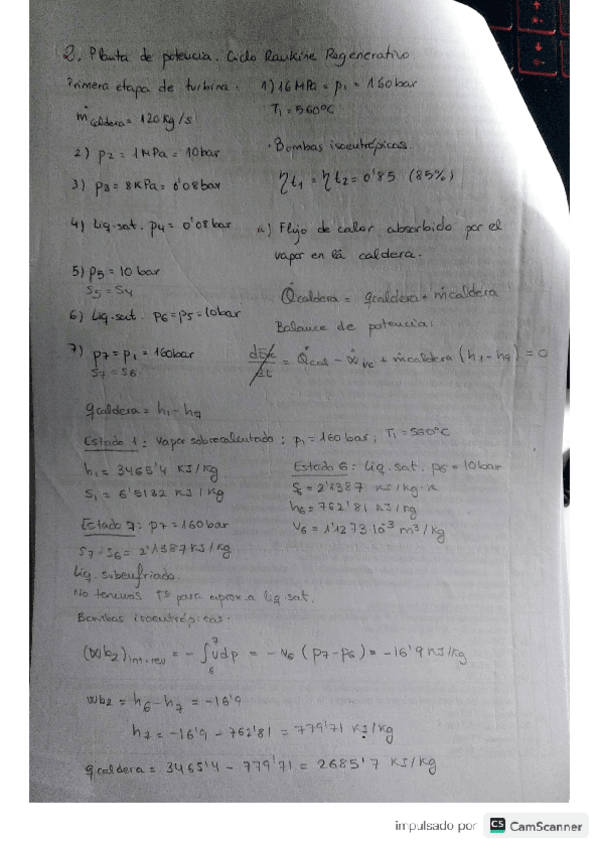 2. Planta de potencia. Ciclo Rankine Regenerativo
Primera etapa de turbina. 1) 16 MPa = p1 = 160 bar
T1 = 560°C
ṁcaldera = 120 kg/s
· Bombas isoentrópicas.
2) p2 = 1 MPa = 10 bar
ηt1 = ηt2 = 0'85 (85%)
3) p3 = 8 KPa = 0'08 bar
4) Liq. sat. p4 = 0'08 bar
a) Flujo de calor absorbido por el
vapor en la caldera.
5) p5 = 10 bar
s5 = s4
Q̇caldera = qcaldera · ṁcaldera
6) Liq. sat. p6 = p5 = 10 bar
Balance de potencia:
7) p7 = p1 = 160 bar
s7 = s6
= Q̇cal - ẇvc + ṁcaldera (h1 - h7) = 0
qcaldera = h1 - h7
Estado 1: Vapor sobrecalentado: p1 = 160 bar; T1 = 560°C
h1 = 3465'4 KJ/kg
s1 = 6'5132 KJ/kg
Estado 6: Liq. sat. p6 = 10 bar
s6 = 2'1387 KJ/kg·K
h6 = 762'81 KJ/kg
v6 = 1'1273 10⁻³ m³/kg
Estado 7: p7 = 160 bar
s7 = s6 = 2'1387 KJ/kg
Liq. subenfriado.
No tenemos Tª para aprox a liq. sat.
Bombas isoentrópicas.
(wb2)int.rev = - ∫₆⁷ vdp = - v6 (p7 - p6) = -16'9 KJ/kg
wb2 = h6 - h7 = -16'9
h7 = -16'9 - 762'81 = 779'71 KJ/kg
qcaldera = 3465'4 - 779'71 = 2685'7 KJ/kg
impulsado por CS CamScanner